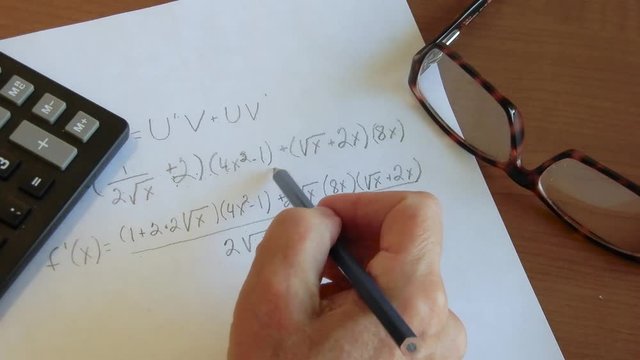 MR M- M+
+
= U'V + UV'
(1/2√x + 2)(4x²-1) + (√x + 2x)(8x)
f'(x) = (1+2•2√x)(4x²-1) + √x (8x)(√x + 2x)
2√